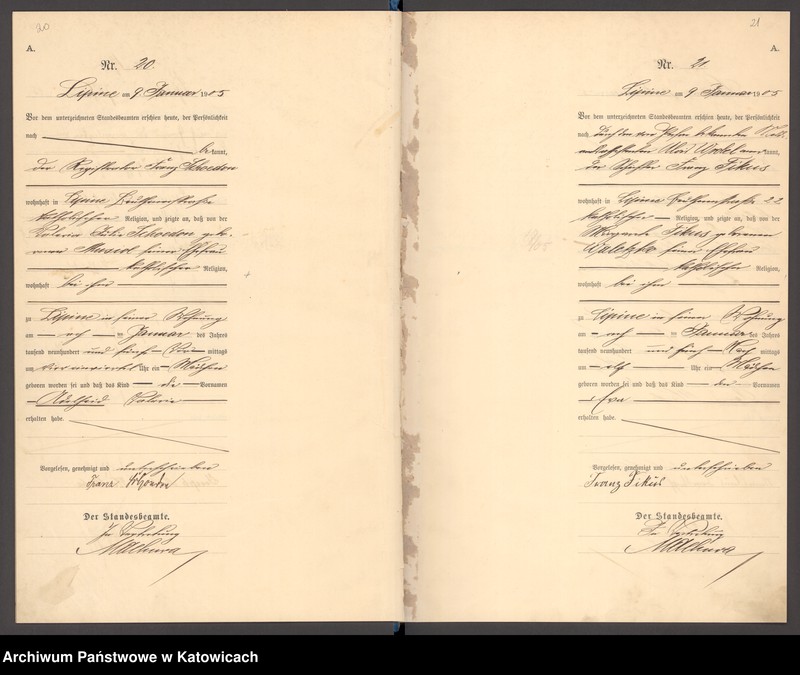 20
A.
Nr. 20.
Lipine am 9 Januar 1905
Vor dem unterzeichneten Standesbeamten erschien heute, der Persönlichkeit
nach
be kannt,
der Registrator Franz
wohnhaft in Lipine Beuthenerstraße
katholischer Religion, und zeigte an, daß von der
Valeria Julie gebo-
renen seiner Ehefrau
katholischer Religion,
wohnhaft bei ihm
zu Lipine in seiner Wohnung
am acht ten Januar des Jahres
tausend neunhundert und fünf Vor mittags
um vier einviertel Uhr ein Mädchen
geboren worden sei und daß das Kind die Vornamen
Adelheid Valeria
erhalten habe.
Vorgelesen, genehmigt und unterschrieben
Franz
Der Standesbeamte.
In Vertretung
Machura
21
A.
Nr. 21
Lipine am 9 Januar 1905
Vor dem unterzeichneten Standesbeamten erschien heute, der Persönlichkeit
nach durch den
kannt,
der Franz Fikus
wohnhaft in Lipine Beuthenerstraße 22
katholischer Religion, und zeigte an, daß von der
Margarete Fikus geborenen
seiner Ehefrau
katholischer Religion,
wohnhaft bei ihm
zu Lipine in seiner Wohnung
am acht ten Januar des Jahres
tausend neunhundert und fünf Nach mittags
um elf Uhr ein Mädchen
geboren worden sei und daß das Kind den Vornamen
Eva
erhalten habe.
Vorgelesen, genehmigt und unterschrieben
Franz Fikus
Der Standesbeamte.
In Vertretung
Machura
Archiwum Państwowe w Katowicach